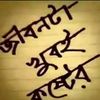 জীবনটা
খুবই
কষ্টের